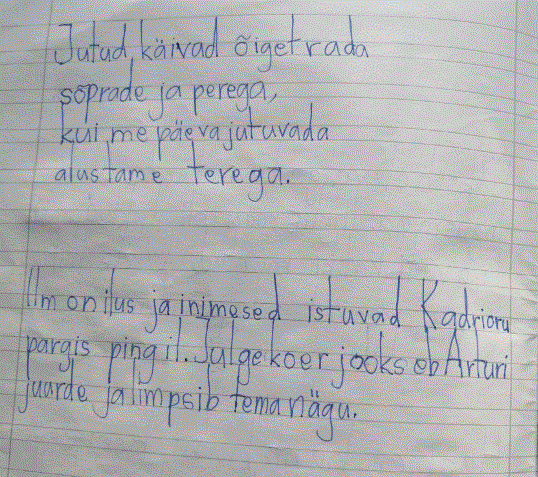 Jutud, käivad õiget rada
sõprade ja perega,
kui, me päeva jutuvada
alustame terega.
Ilm on ilus ja inimesed istuvad Kadrioru
pargis pingil. Julge koer jooks eb Arturi
juurde ja limpsib tema nägu.